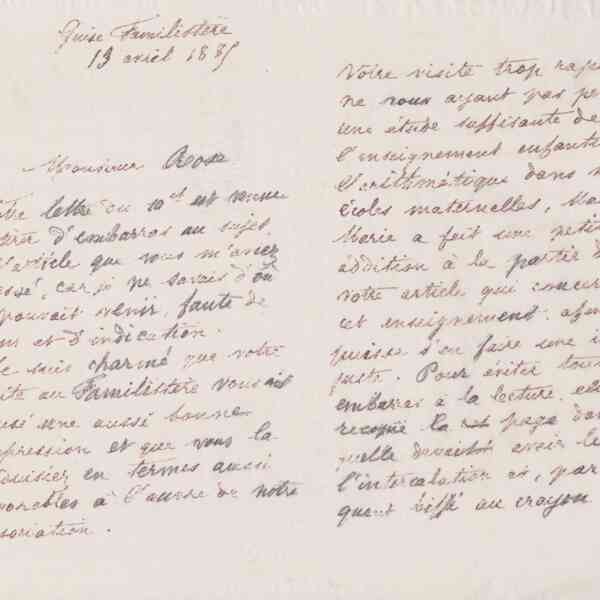 Guise Familistère
13 avril 1885
Monsieur Rose
lettre du 10 ct est venue
tirer d'embarras au sujet
l'article que vous m'aviez
car je ne savais d'où
pouvait venir, faute de
et d'indication.
suis charmé que votre
au Familistère vous ait
une aussi bonne
impression et que vous la
en termes aussi
à l'œuvre de notre
association.
Votre visite trop rap
ne vous ayant pas pe
une étude suffisante de
l'enseignement enfanti
l'arithmétique dans n
écoles maternelles, Ma
Marie a fait une peti
addition à la partie d
votre article qui concer
cet enseignement, afin
puisse s'en faire une i
juste. Pour éviter tou
embarras à la lecture, el
recopié la page dan
quelle devait avoir le
l'intercalation et, par
quent biffé au crayon